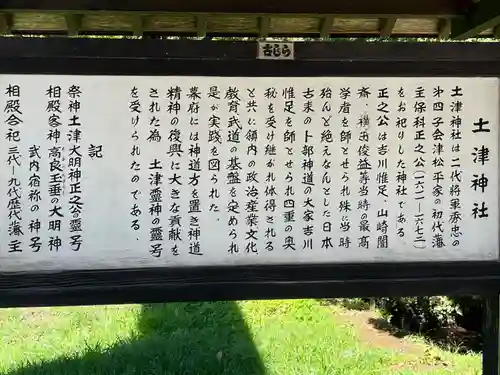 古じら
土津神社
土津神社は二代將軍秀忠の
第四子会津松平家の初代藩
主保科正之公(一六一一―一六七三)
をお祀りした神社である
正之公は吉川惟足、山崎闇
斎、横田俊益等当時の最高
学者を師とせられ殊に当時
殆んど絶えなんとした日本
古来の卜部神道の大家吉川
惟足を師とせられ四重の奥
秘を受け継がれ体得される
と共に領内の政治産業文化
教育武道の基盤を定められ
是が実践を図られた
幕府には神道方を置き神道
精神の復興に大きな貢献を
された為 土津霊神の霊号
を受けられたのである.
記
祭神土津大明神正之公の霊号
相殿客神高良玉垂の大明神
武内宿祢の神号
相殿合祀 三代~九代歴代藩主